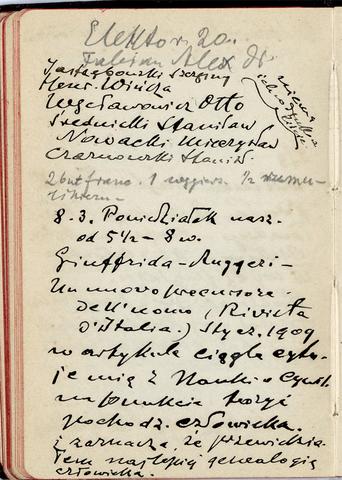 Elektor. 20.
Fabian Alex dr.
Jastrzębowski
Henr.
Węcławowicz Otto
Średnicki Stanisław
Nowacki Mieczysław
Czarnowski Stanisł.
1 węgiers. 1/2
8.3. Poniedziałek nasz.
od 5 1/2 – 8 w.
Giuffrida-Ruggeri –
Un nuovo precursore
dell'uomo (Rivista
d'Italia.) Stycz. 1909
w artykule ciągle cytu-
je mię z Nauki o Cywil.
na punkcie teoryi
pochodz. człowieka.
i zaznacza, że przewidzia-
łem najlepiej genealogię
człowieka.